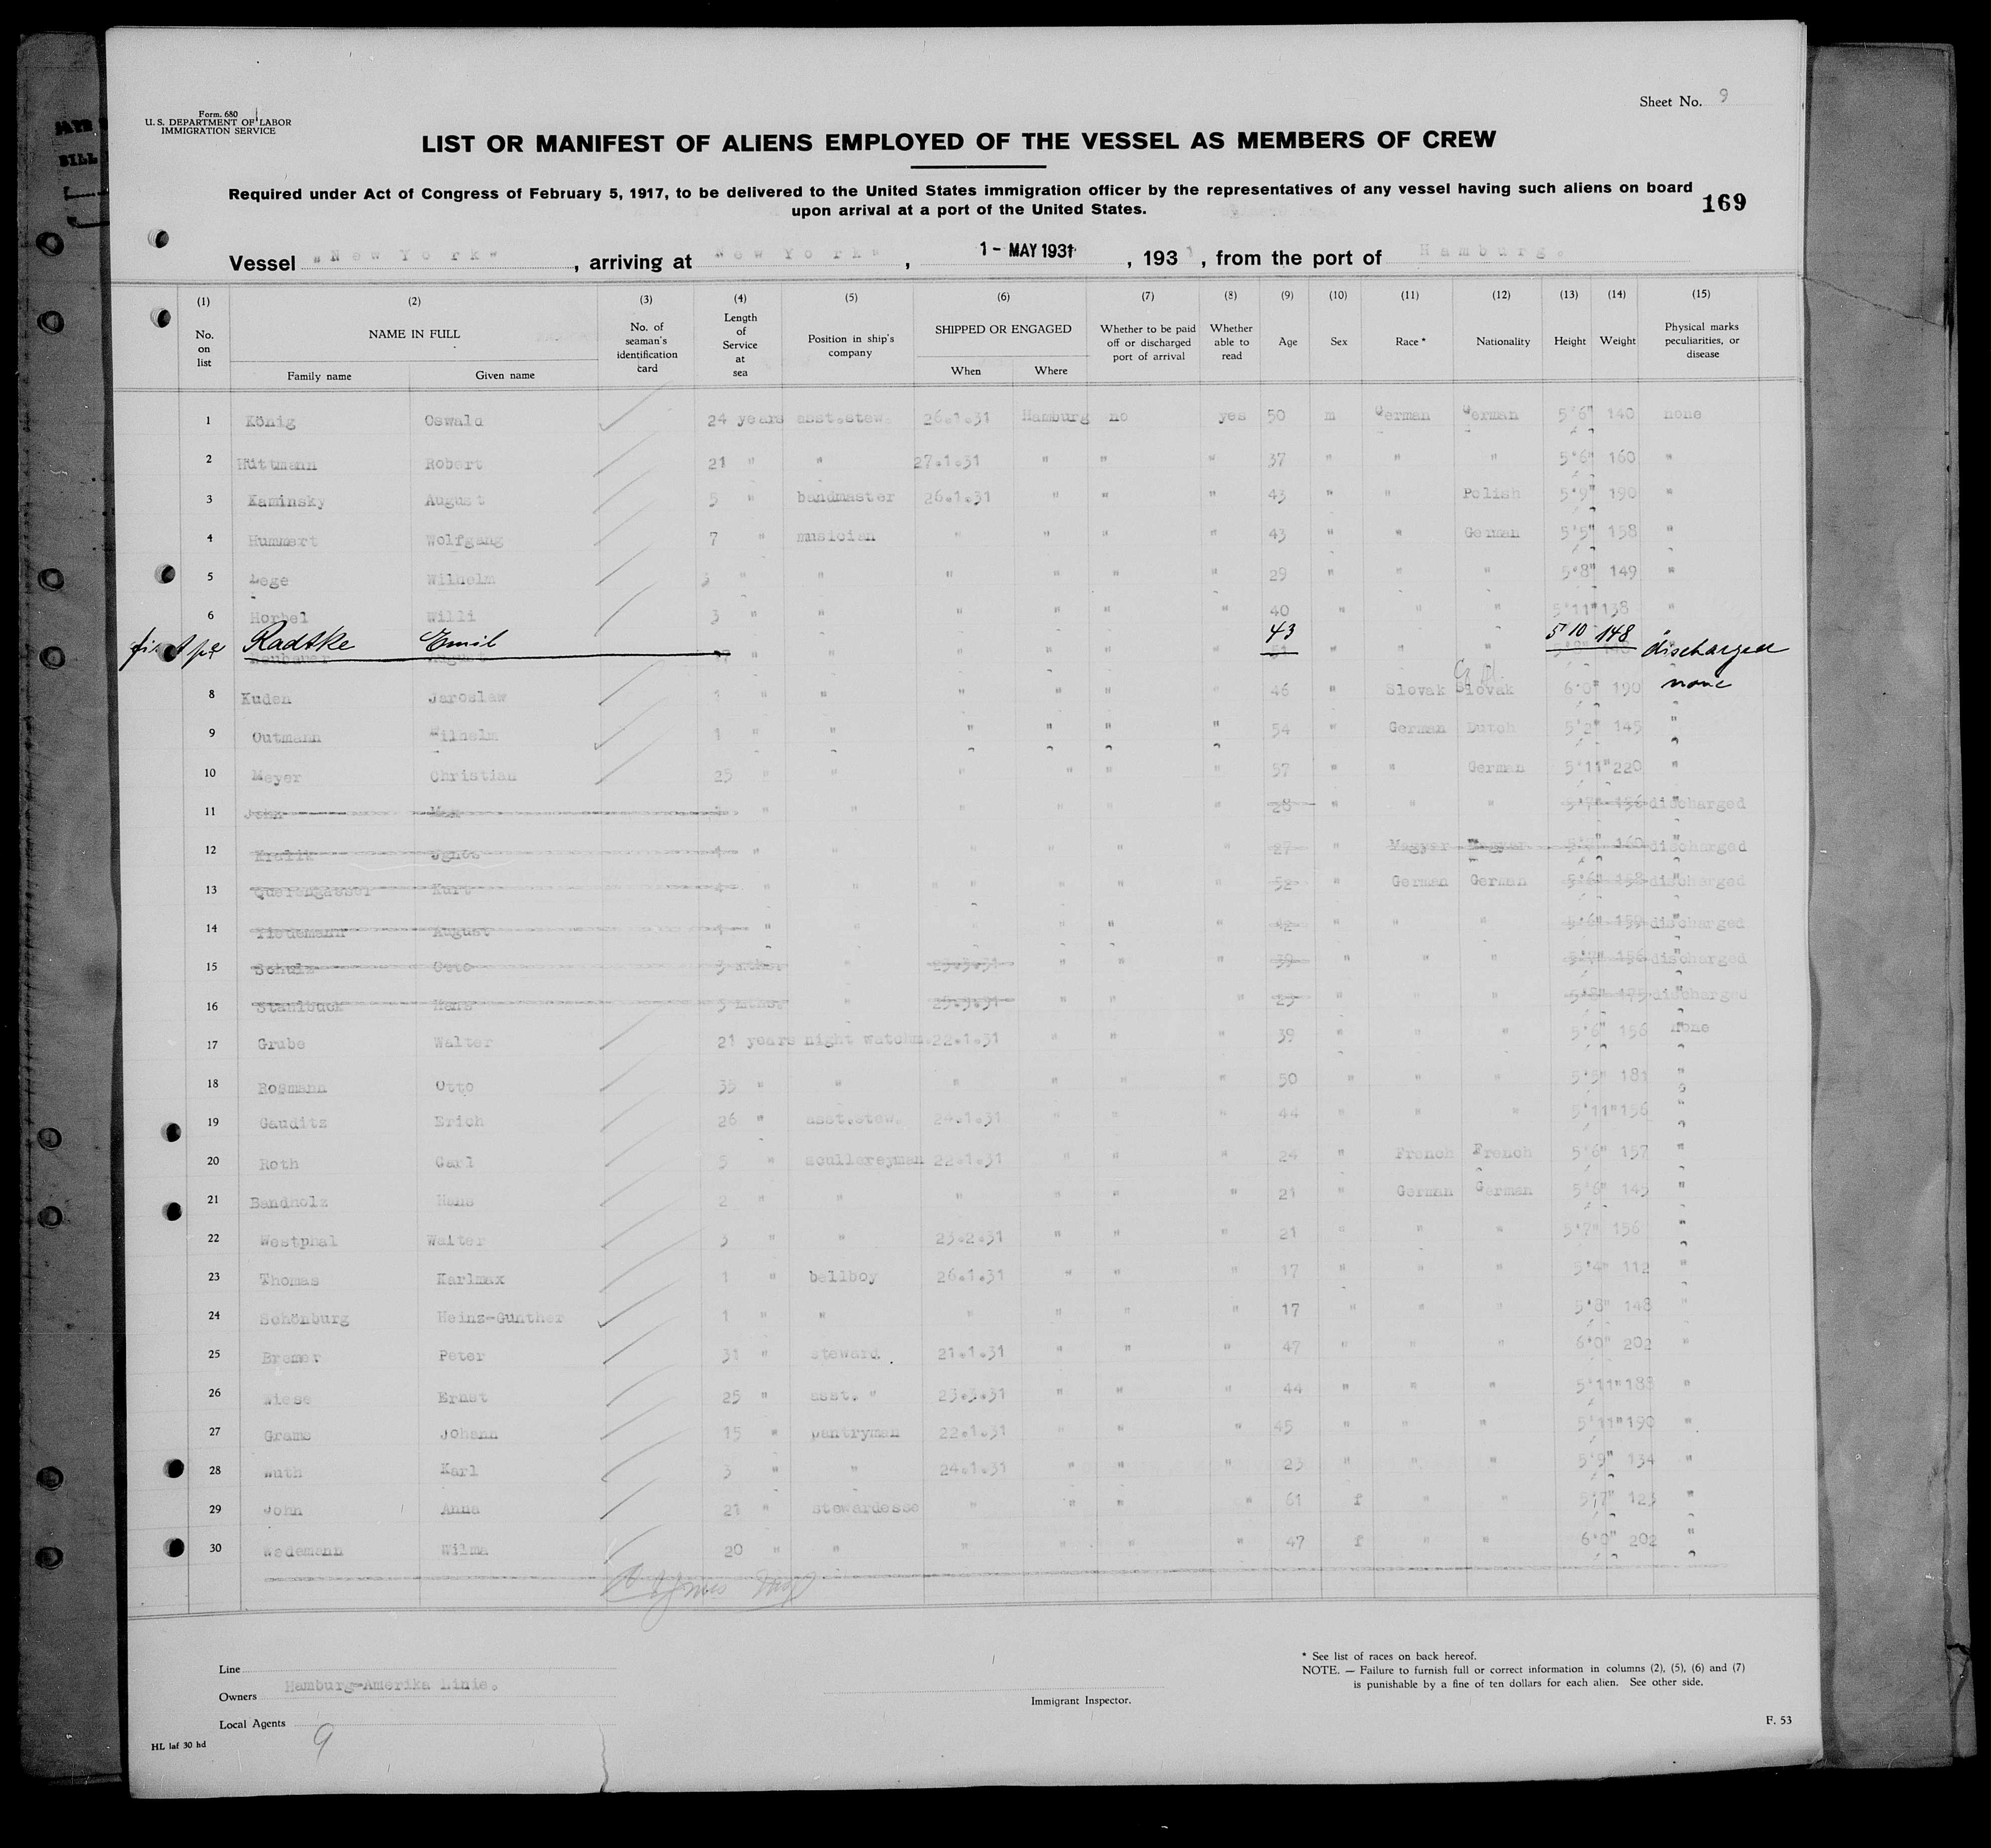 Form. 680
U. S. DEPARTMENT OF LABOR
IMMIGRATION SERVICE
Sheet No. 9
LIST OR MANIFEST OF ALIENS EMPLOYED OF THE VESSEL AS MEMBERS OF CREW
Required under Act of Congress of February 5, 1917, to be delivered to the United States immigration officer by the representatives of any vessel having such aliens on board
upon arrival at a port of the United States.
169
Vessel "New York", arriving at "New York", 1 - MAY 1931, 1931, from the port of Hamburg.
(1) (2) (3) (4) (5) (6) (7) (8) (9) (10) (11) (12) (13) (14) (15)
No. on list NAME IN FULL Family name Given name No. of seaman's identification card Length of Service at sea Position in ship's company SHIPPED OR ENGAGED When Where Whether to be paid off or discharged port of arrival Whether able to read Age Sex Race * Nationality Height Weight Physical marks peculiarities, or disease
1 König Oswald 24 years asst.stew. 26.1.31 Hamburg no yes 50 m German German 5'6" 140 none
2 Hüttmann Robert 21 " " 27.1.31 " " " 37 " " " 5'6" 160 "
3 Kaminsky August 5 " bandmaster 26.1.31 " " " 43 " " Polish 5'9" 190 "
4 Hummert Wolfgang 7 " musician " " " " 43 " " German 5'5" 158 "
5 Lege Wilhelm 3 " " " " " " 29 " " " 5'8" 149 "
6 Horbel Willi 3 " " " " " " 40 " " " 5'11" 138 "
Radtke Emil 43 5 10 148 discharged
" " " " " " 51 " " "
8 Kuden Jaroslaw 1 " " " " " " 46 " Slovak Slovak 6'0" 190 none
9 Outmann Wilhelm 1 " " " " " " 54 " German Dutch 5'2" 145 "
10 Meyer Christian 25 " " " " " " 57 " " German 5'11" 220 "
11 John Max " " " " " " 28 " " " 5'7" 156 discharged
12 Kralik Jgnos 4 " " " " " " 27 " Magyar Magyar 160 discharged
13 Querengässer Kurt 4 " " " " " " 52 " German German 5'6" 158 discharged
14 Tiedemann August " " " " " " 42 " " " 5'6" 159 discharged
15 Schulz Otto 3 mths. " 23.3.31 " " " 39 " " " 5'7" 156 discharged
16 Stahlbuck Hans 3 mths. " 23.3.31 " " " 23 " " " 5'8" 175 discharged
17 Grube Walter 21 years night watchm. 22.1.31 " " " 39 " " " 5'6" 156 none
18 Roßmann Otto 35 " " " " " " 50 " " " 5'5" 181 "
19 Gauditz Erich 26 " asst.stew. 24.1.31 " " " 44 " " " 5'11" 156 "
20 Roth Carl 5 " scullereyman 22.1.31 " " " 24 " French French 5'6" 157 "
21 Bandholz Hans 2 " " " " " " 21 " German German 5'6" 145 "
22 Westphal Walter 3 " " 23.2.31 " " " 21 " " " 5'7" 156 "
23 Thomas Karlmax 1 " bellboy 26.1.31 " " " 17 " " " 5'4" 112 "
24 Schönburg Heinz-Gunther 1 " " " " " " 17 " " " 5'8" 148 "
25 Bremer Peter 31 " steward 21.1.31 " " " 47 " " " 6'0" 202 "
26 Wiese Ernst 25 " asst. " 23.3.31 " " " 44 " " " 5'11" 183 "
27 Grams Johann 15 " pantryman 22.1.31 " " " 45 " " " 5'11" 190 "
28 Wuth Karl 3 " " 24.1.31 " " " 23 " " " 5'9" 134 "
29 John Anna 21 " stewardesse " " " " 61 f " " 5'7" 123 "
30 Wedemann Wilma 20 " " " " " " 47 f " " 6'0" 202 "
Line
Owners Hamburg-Amerika Linie.
Local Agents
9
HL laf 30 hd
Immigrant Inspector.
* See list of races on back hereof.
NOTE. — Failure to furnish full or correct information in columns (2), (5), (6) and (7)
is punishable by a fine of ten dollars for each alien. See other side.
F. 53